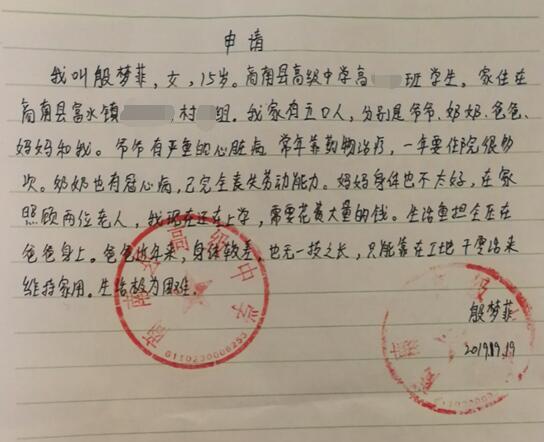 申请
我叫殷梦菲，女，15岁。商南县高级中学高 班学生。家住在
商南县富水镇 村 组。我家有五口人，分别是爷爷、奶奶、爸爸、
妈妈和我。爷爷有严重的心脏病，常年靠药物治疗，一年要住院很多
次。奶奶也有冠心病，已完全丧失劳动能力。妈妈身体也不太好，在家
照顾两位老人，我现在还在上学，需要花费大量的钱。生活重担全压在
爸爸身上。爸爸近年来，身体较差，也无一技之长，只能靠在工地干零活来
维持家用。生活极为困难。
商南县高级中学
6110230006253
殷梦菲
2019.09.19